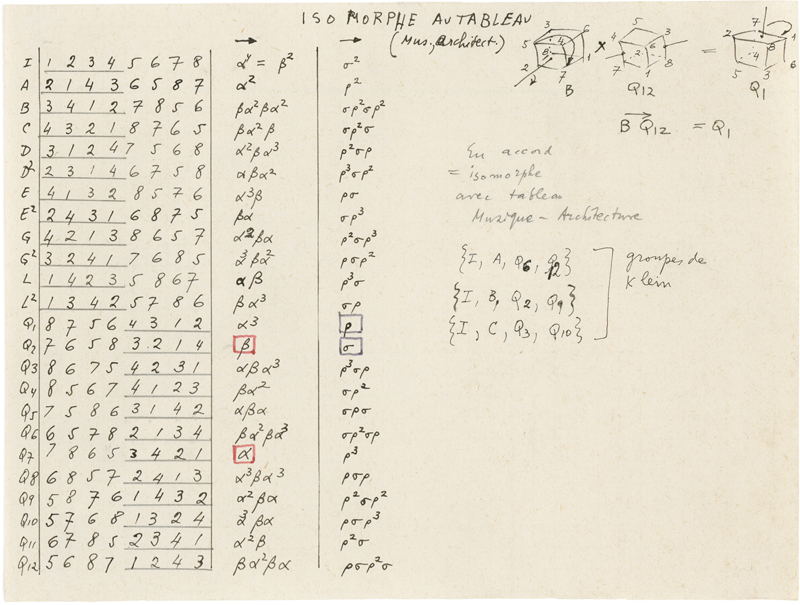 ISOMORPHE AU TABLEAU
(Mus., architect.)
I 1 2 3 4 5 6 7 8 α⁴ = β² σ²
A 2 1 4 3 6 5 8 7 α² ρ²
B 3 4 1 2 7 8 5 6 βα²βα² σρ²σρ²
C 4 3 2 1 8 7 6 5 βα²β σρ²σ
D 3 1 2 4 7 5 6 8 α²βα³ ρ²σρ
D² 2 3 1 4 6 7 5 8 αβα² ρ³σρ²
E 4 1 3 2 8 5 7 6 α³β ρσ
E² 2 4 3 1 6 8 7 5 βα σρ³
G 4 2 1 3 8 6 5 7 α²βα ρ²σρ³
G² 3 2 4 1 7 6 8 5 α³βα² ρσρ²
L 1 4 2 3 5 8 6 7 αβ ρ³σ
L² 1 3 4 2 5 7 8 6 βα³ σρ
Q1 8 7 5 6 4 3 1 2 α³ ρ
Q2 7 6 5 8 3 2 1 4 β σ
Q3 8 6 7 5 4 2 3 1 αβα³ ρ³σρ
Q4 8 5 6 7 4 1 2 3 βα² σρ²
Q5 7 5 8 6 3 1 4 2 αβα σρσ
Q6 6 5 7 8 2 1 3 4 βα²βα³ σρ²σρ
Q7 7 8 6 5 3 4 2 1 α ρ³
Q8 6 8 5 7 2 4 1 3 α³βα³ ρσρ
Q9 5 8 7 6 1 4 3 2 α²βα ρ²σρ²
Q10 5 7 6 8 1 3 2 4 α³βα ρσρ³
Q11 6 7 8 5 2 3 4 1 α²β ρ²σ
Q12 5 6 8 7 1 2 4 3 βα²βα ρσρ²σ
B × Q12 = Q1
B Q12 = Q1
En accord
= isomorphe
avec tableau
Musique - Architecture
{I, A, Q6, Q12}
{I, B, Q2, Q9}
{I, C, Q3, Q10}
groupes de
Klein